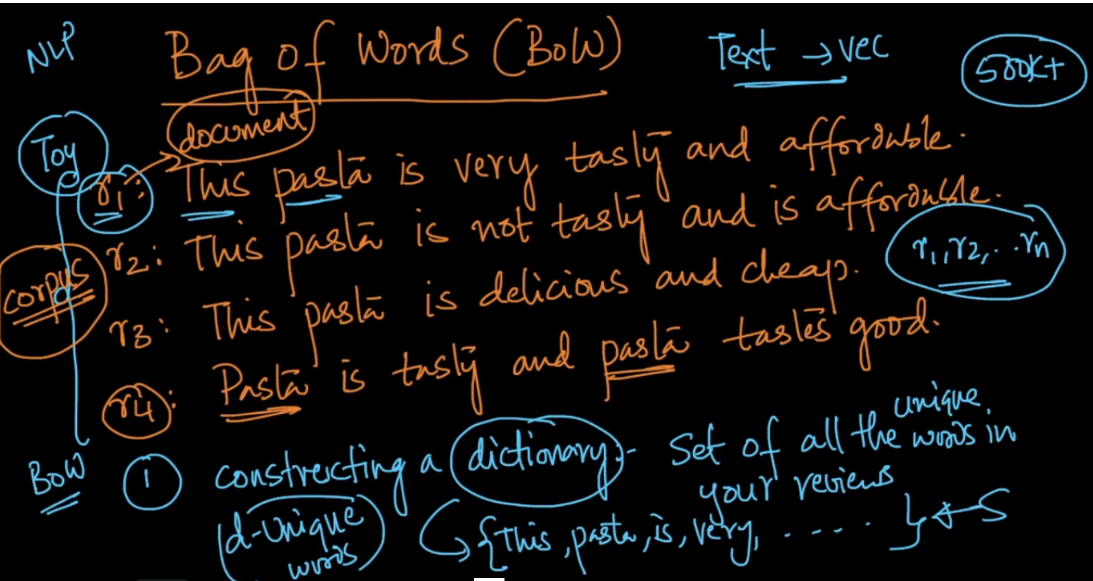 NLP
Bag of Words (BoW)
Text → vec
500K+
document
Toy
r1: This pasta is very tasty and affordable.
r2: This pasta is not tasty and is affordable.
r1, r2, .. rn
corpus
r3: This pasta is delicious and cheap.
r4: Pasta is tasty and pasta tastes good.
BoW
1 constructing a dictionary:- Set of all the unique words in your reviews
(d-unique words)
{this, pasta, is, very, ..... } ← S